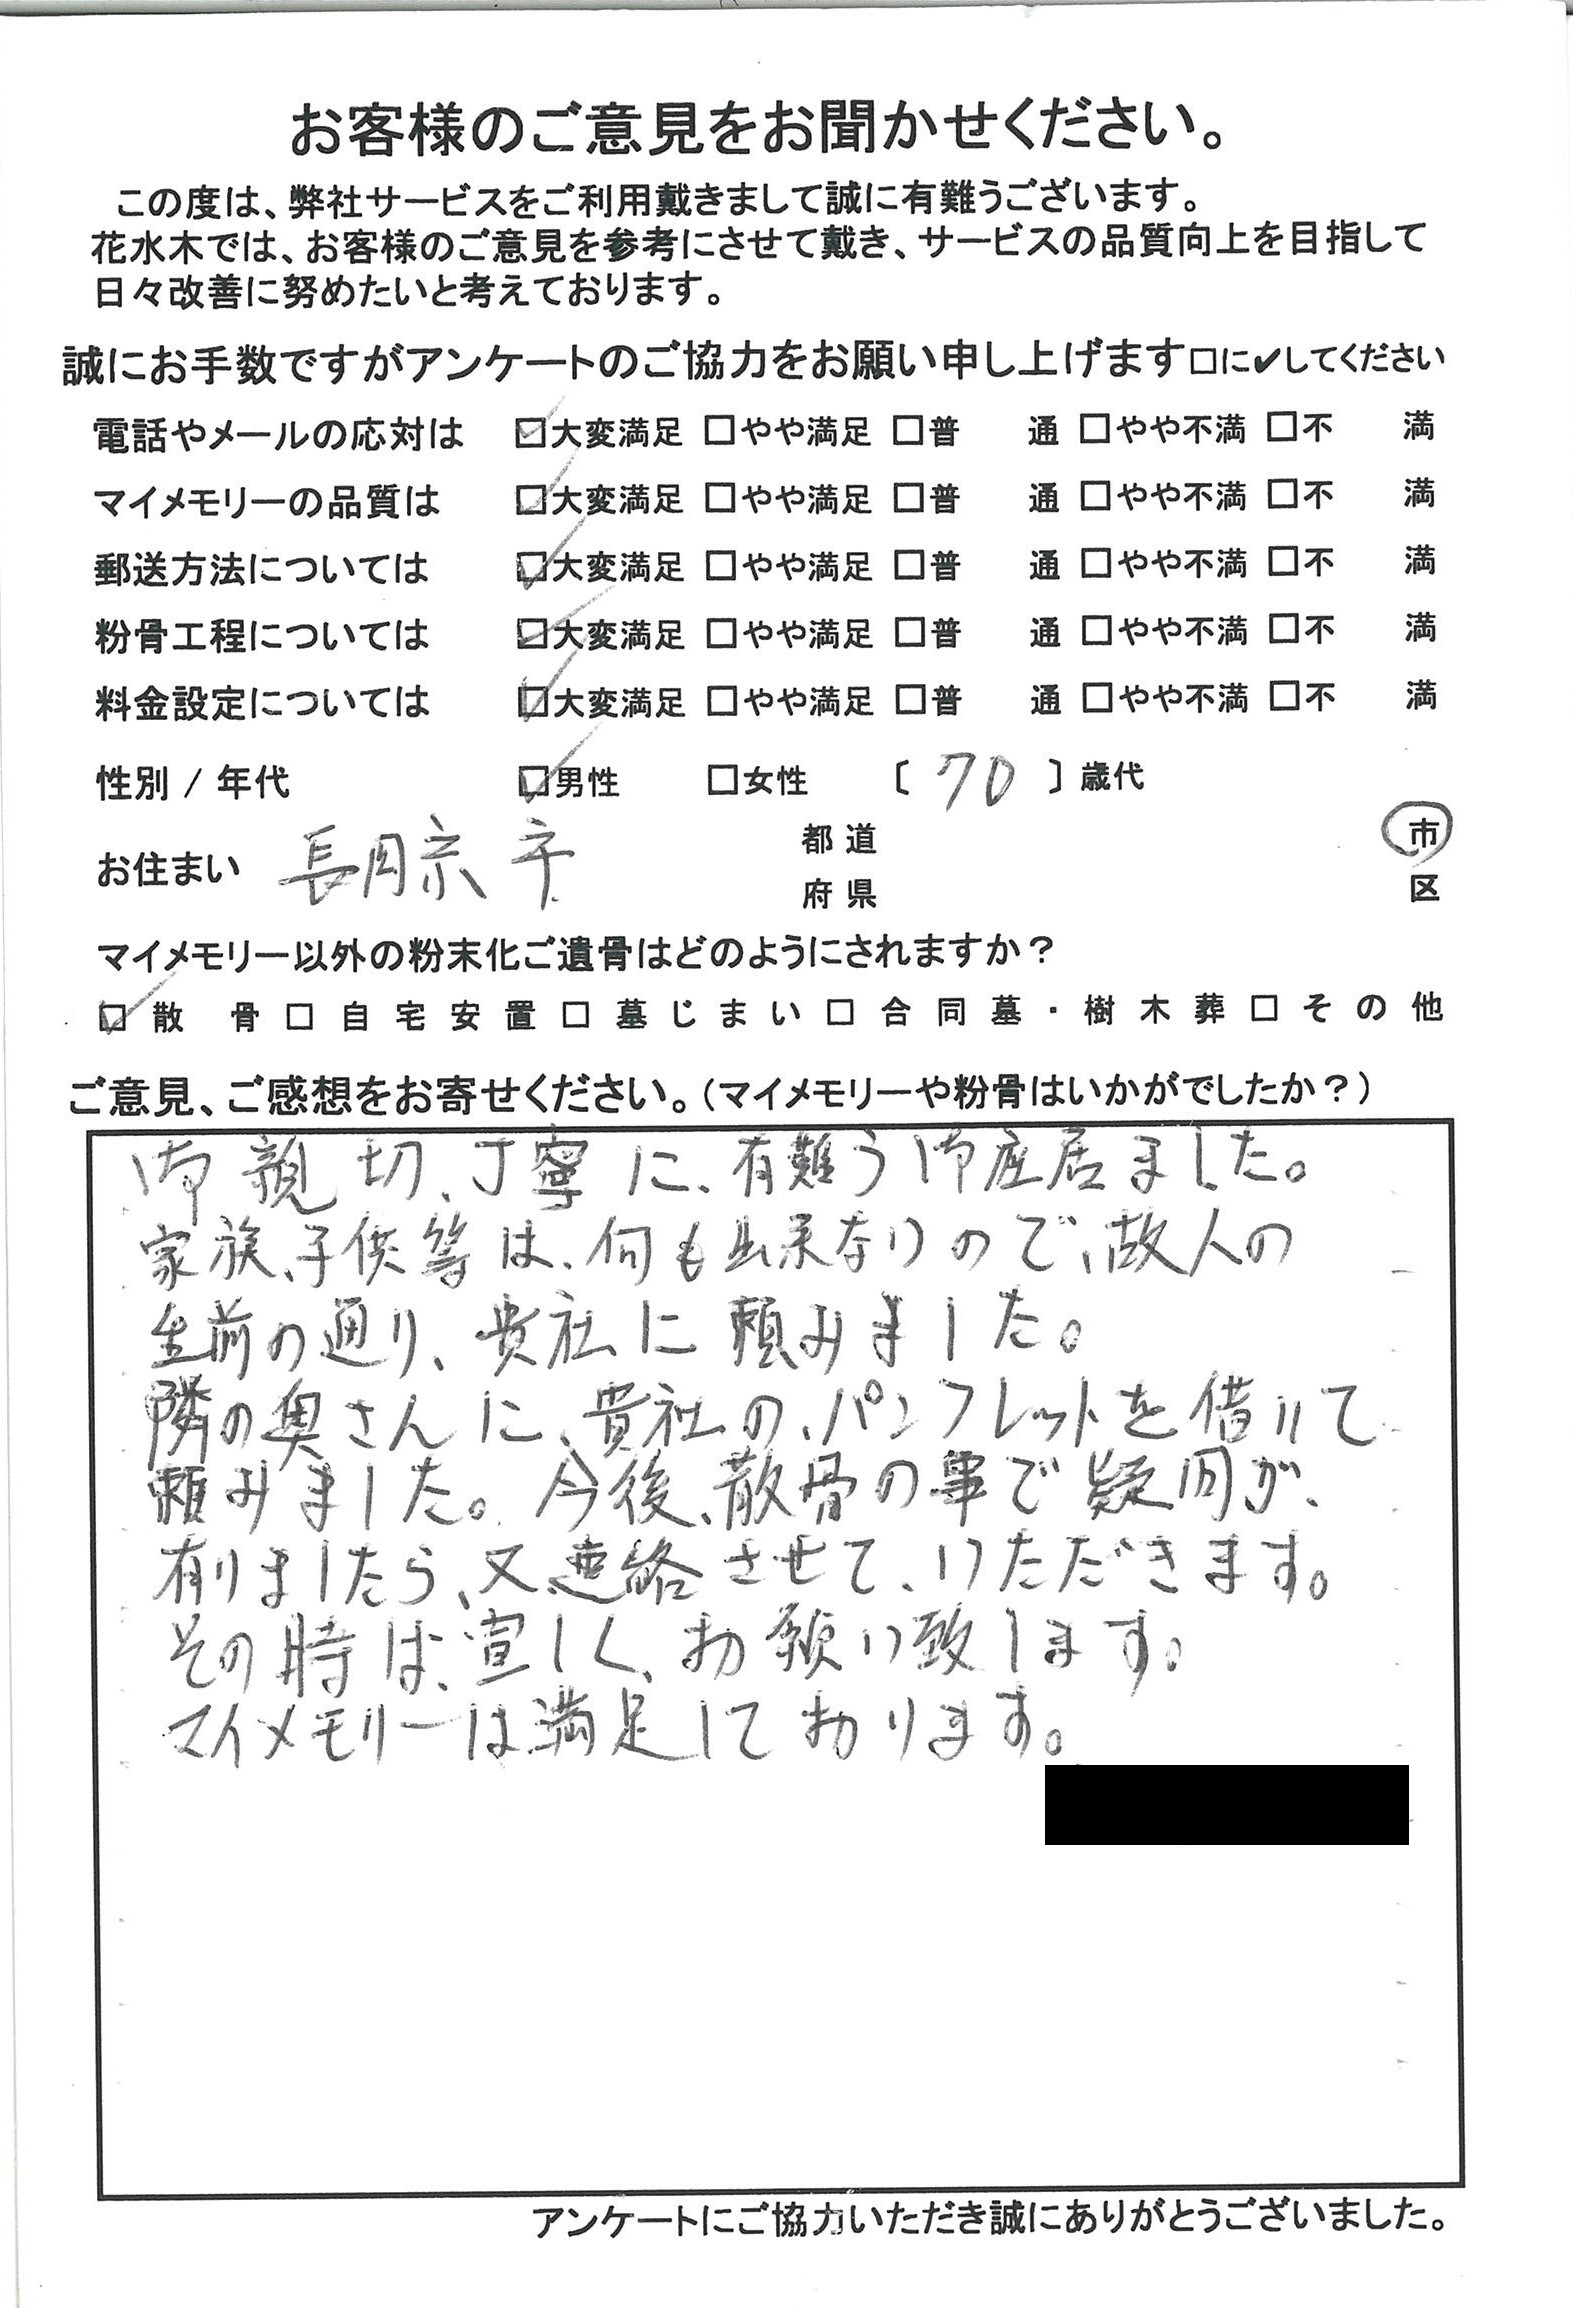 お客様のご意見をお聞かせください。
この度は、弊社サービスをご利用戴きまして誠に有難うございます。
花水木では、お客様のご意見を参考にさせて戴き、サービスの品質向上を目指して
日々改善に努めたいと考えております。
誠にお手数ですがアンケートのご協力をお願い申し上げます□に✔してください
電話やメールの応対は ☑大変満足 □やや満足 □普 通 □やや不満 □不 満
マイメモリーの品質は ☑大変満足 □やや満足 □普 通 □やや不満 □不 満
郵送方法については ☑大変満足 □やや満足 □普 通 □やや不満 □不 満
粉骨工程については ☑大変満足 □やや満足 □普 通 □やや不満 □不 満
料金設定については ☑大変満足 □やや満足 □普 通 □やや不満 □不 満
性別 / 年代 ☑男性 □女性 〔 70 〕歳代
お住まい 長岡京市 都道府県 市区
マイメモリー以外の粉末化ご遺骨はどのようにされますか？
☑散 骨 □自宅安置 □墓じまい □合同墓・樹木葬 □その他
ご意見、ご感想をお寄せください。（マイメモリーや粉骨はいかがでしたか？）
御親切、丁寧に、有難う御座居ました。
家族、子供等は、何も出来ないので、故人の
生前の通り、貴社に頼みました。
隣の奥さんに、貴社の、パンフレットを借りて
頼みました。今後、散骨の事で疑問が、
有りましたら、又連絡させて、いただきます。
その時は、宜しく、お願い致します。
マイメモリーは満足しております。
アンケートにご協力いただき誠にありがとうございました。